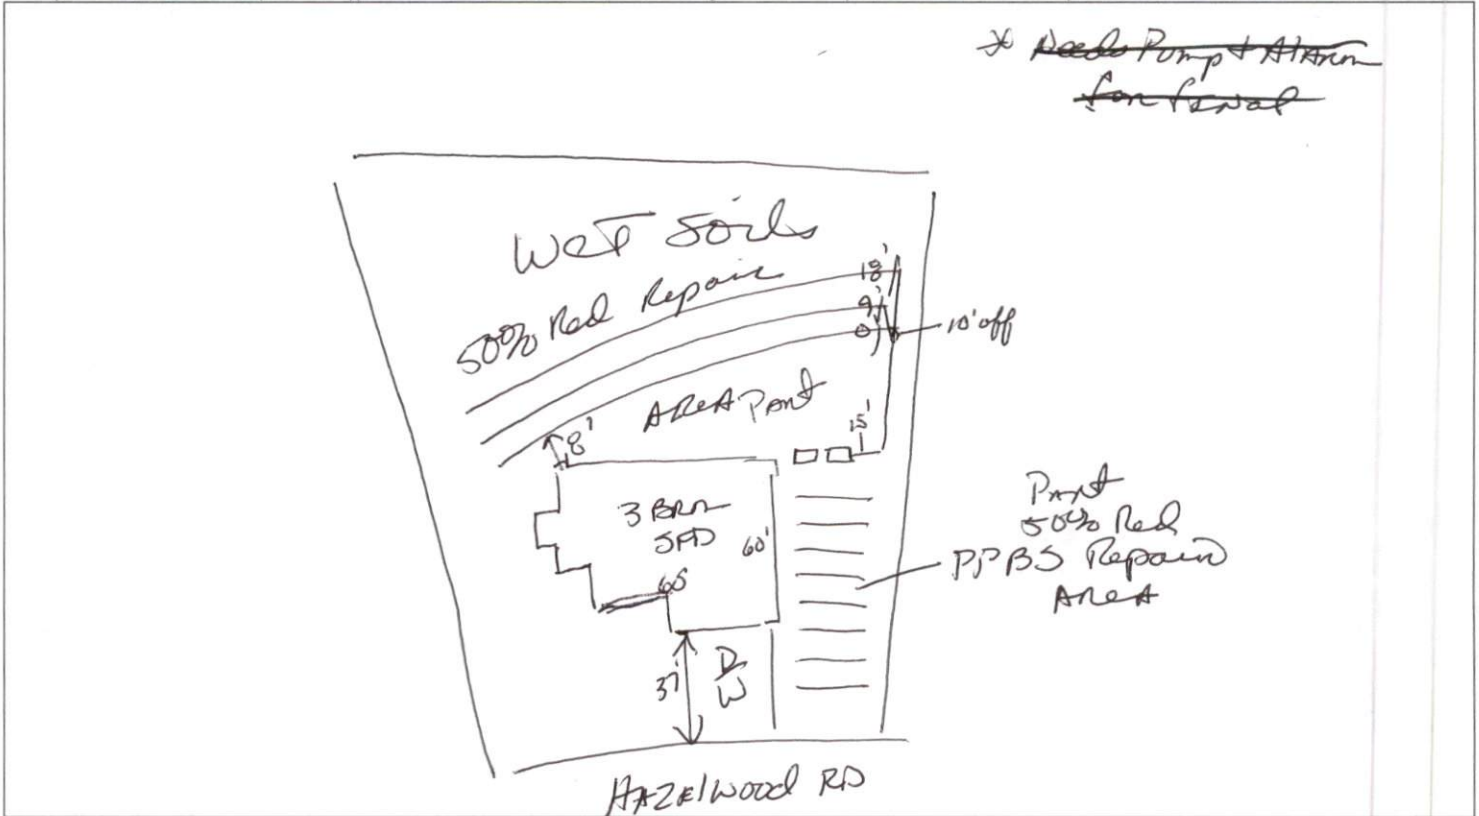 * Needs Pump + Alarm
for final
Wet Soils
50% Red Repair
18'
9'
0'
10' off
Area Part
15'
8'
3 BRM
SFD
60'
65
37'
D/W
Part
50% Red
PPBS Repair
Area
Hazelwood RD